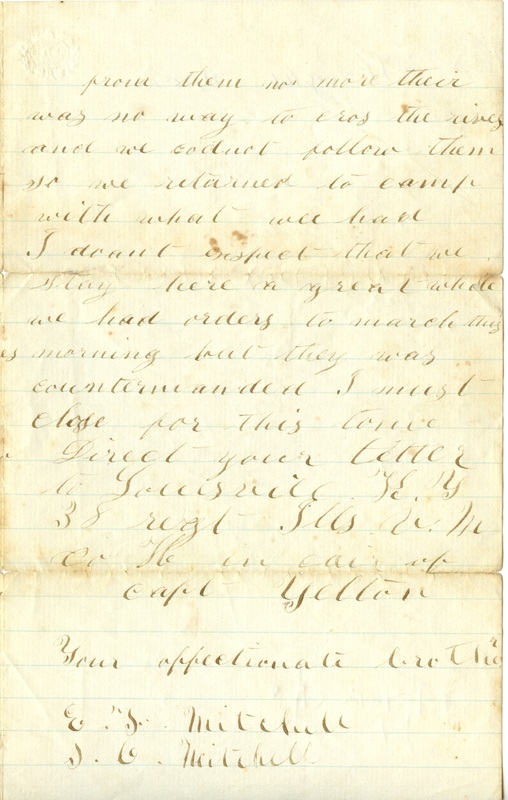 from them no more their
was no way to cros the river
and we coduct follow them
so we returned to camp
with what wee had
I doant exspect that we
stay here a great while
we had orders to march this
morning but they was
countermanded I must
close for this time
Direct your letter
to Louisvile K.Y
38 regt Ills V. M
co H in cair of
capt Yelton
Your affectionate brother
E. F. Mitchell
J. C. Mitchell